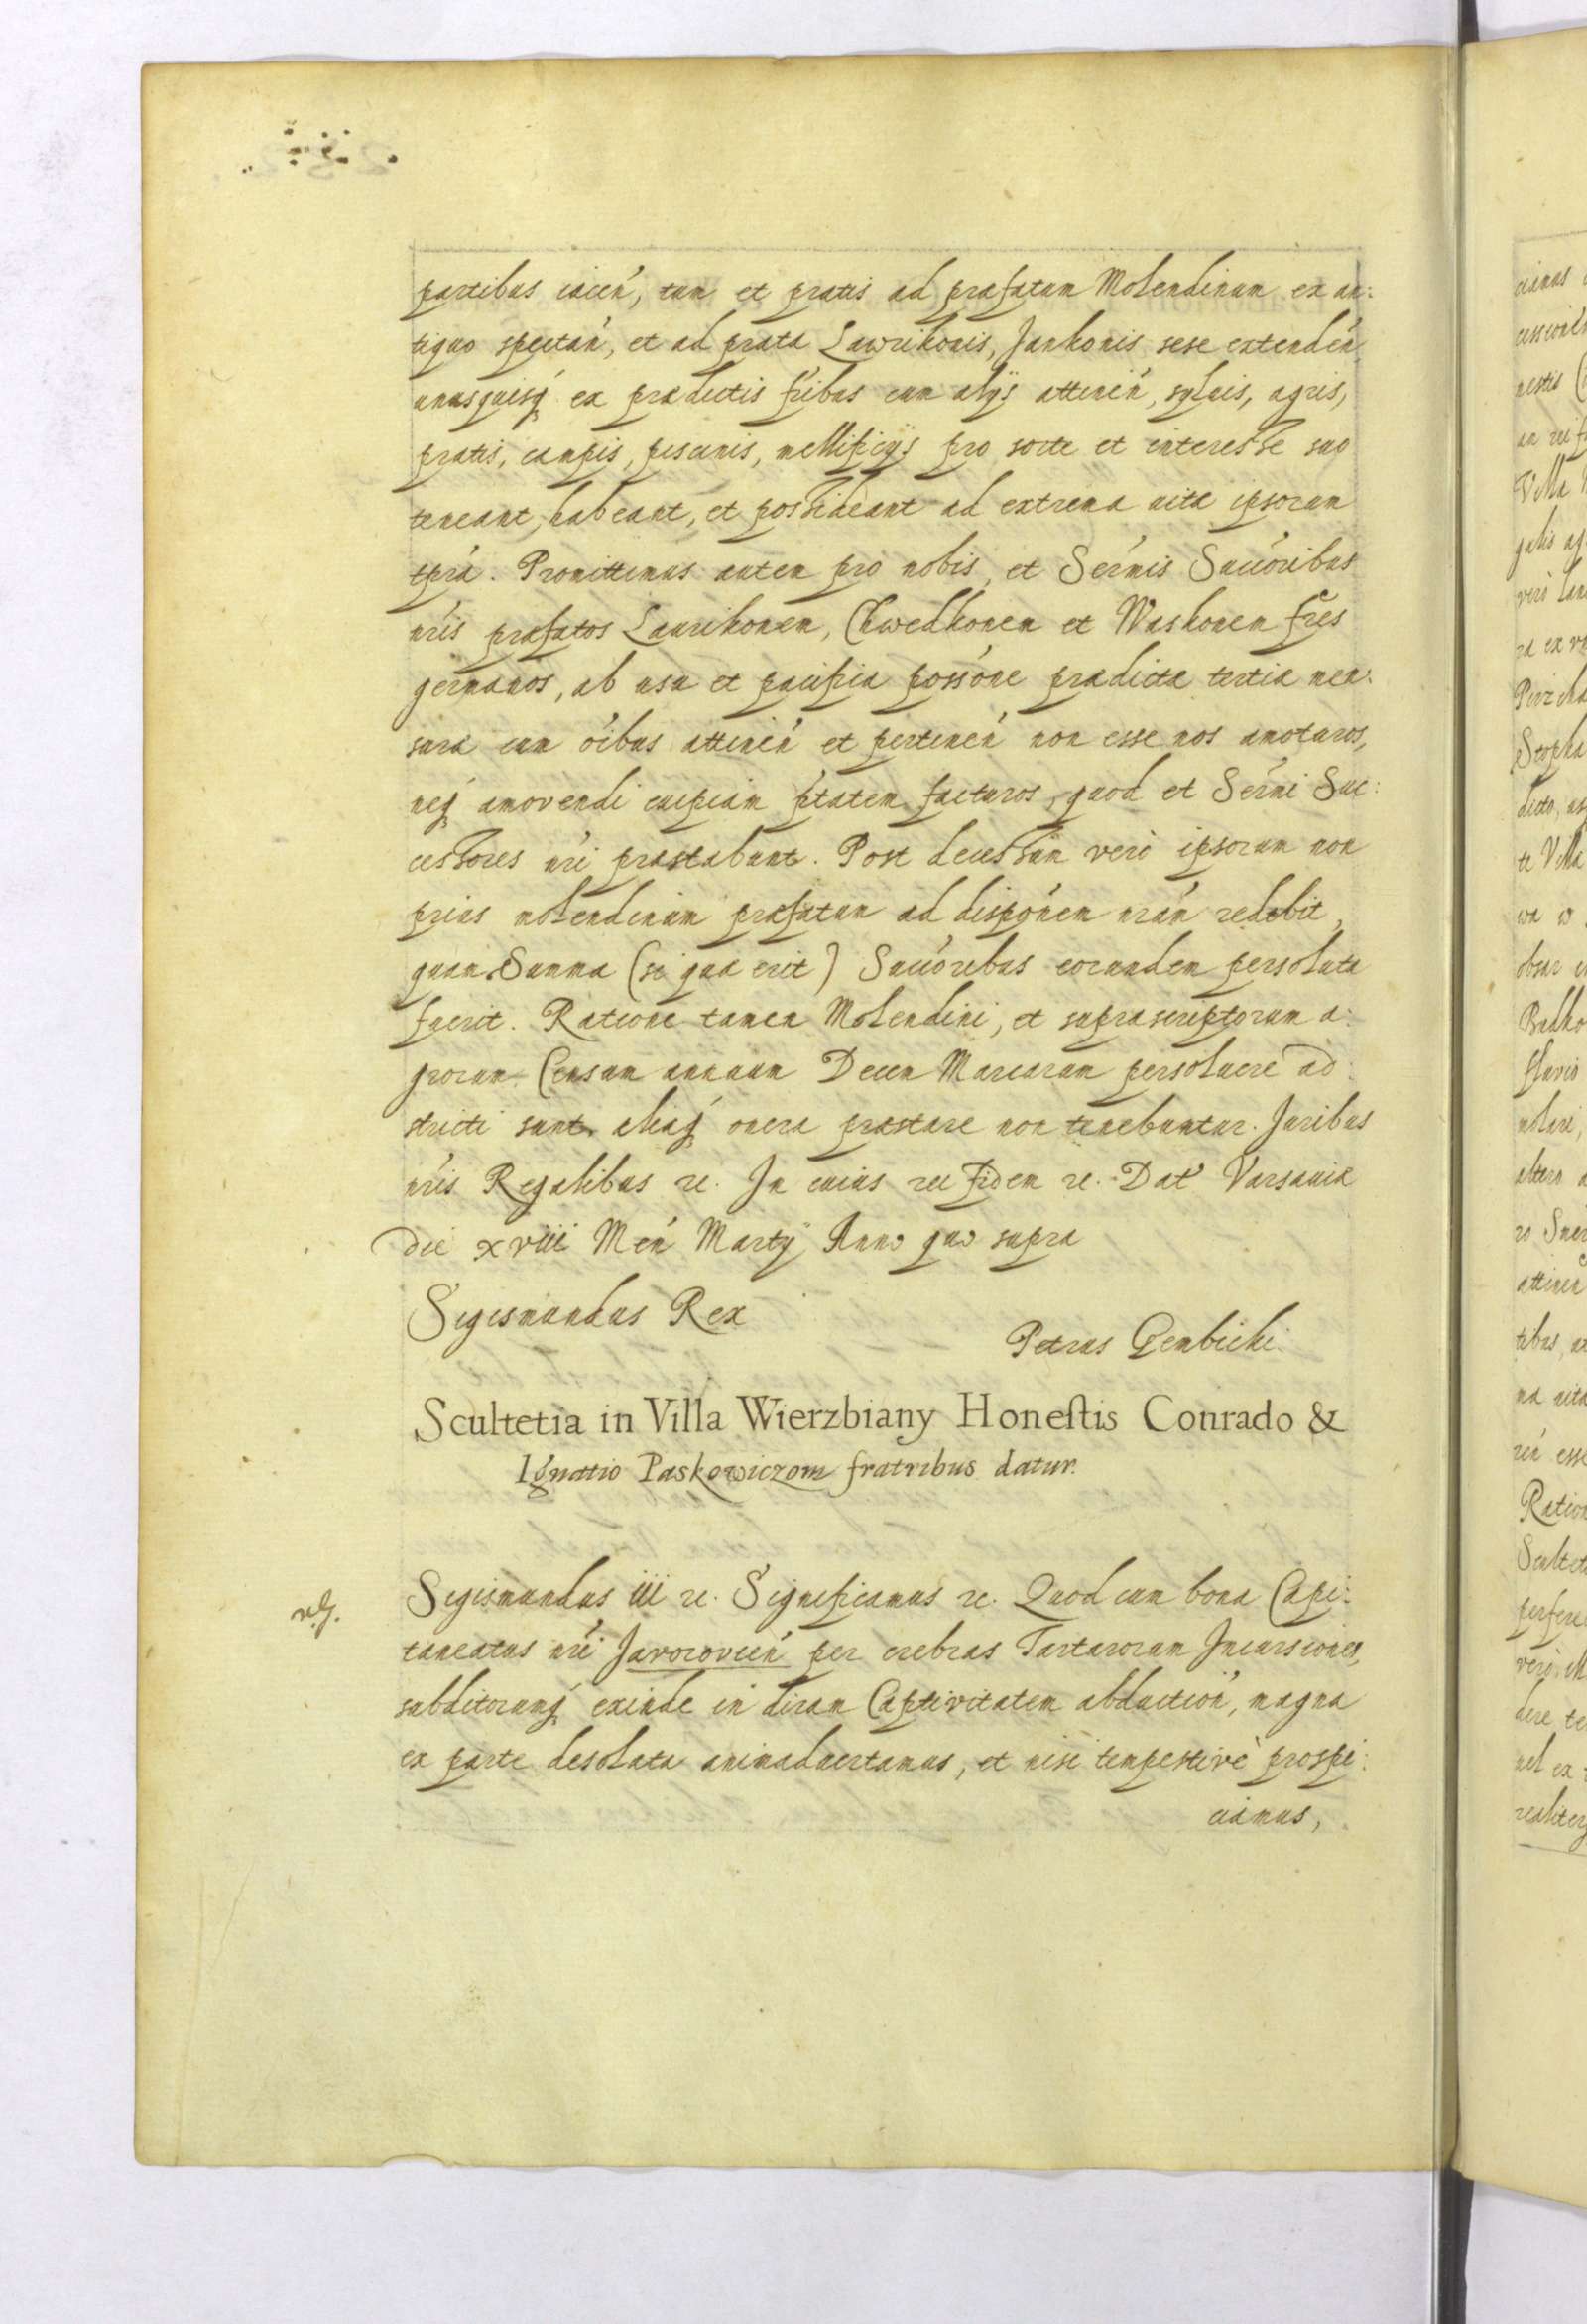 partibus iacen̄, tum et pratis ad præfatum Molendinum ex an:
tiquo spectan̄, et ad prata Lawrikonis, Jankonis sese extenden̄
unusquisq́ ex prædictis fribus cum alÿs attinen̄, syluis, agris,
pratis, campis, piscinis, mellificÿs pro sorte et interesse suo
teneant, habeant, et possideant ad extrema uitæ ipsorum
tp̄ra. Promittimus autem pro nobis, et Seŕmis Succóribus
nŕis præfatos Laurikonem, Chwedkonem et Waskonem fr̄es
germanos, ab usu et pacifica possóne prædictæ tertiæ men:
suræ cum óibus attinen̄ et pertinen̄ non esse nos amoturos,
neq́ amovendi cuipiam p̄tatem facturos, quod et Seŕmi Suc:
cessores nŕi præstabunt. Post decessum verò ipsorum non
prius molendinum præfatum ad dispónem nrám redibit,
quam Summa (si quæ erit) Succóribus eorundem persoluta
fuerit. Ratione tamen Molendini, et suprascriptorum a:
grorum Censum annuum Decem Marcarum persoluere ad:
stricti sunt, aliaq́ onera præstare non tenebuntur. Juribus
nŕis Regalibus rc. In cuius rei fidem rc. Dat̄ Varsauiæ
die xviii Men̄ Martÿ Anno quo supra
Sigismundus Rex
Petrus Gembicki
Scultetia in Villa Wierzbiany Honestis Conrado &
Ignatio Paskowiczom fratribus datur.
Sigismundus iii rc. Significamus rc. Quod cum bona Capi:
taneatus nŕi Javorovien̄ per crebras Tartarorum Incursiones,
subditorumq́ exinde in diram Captivitatem abduction̄, magna
ex parte desolata animaduertamus, et nisi tempestivè prospi:
ciamus,